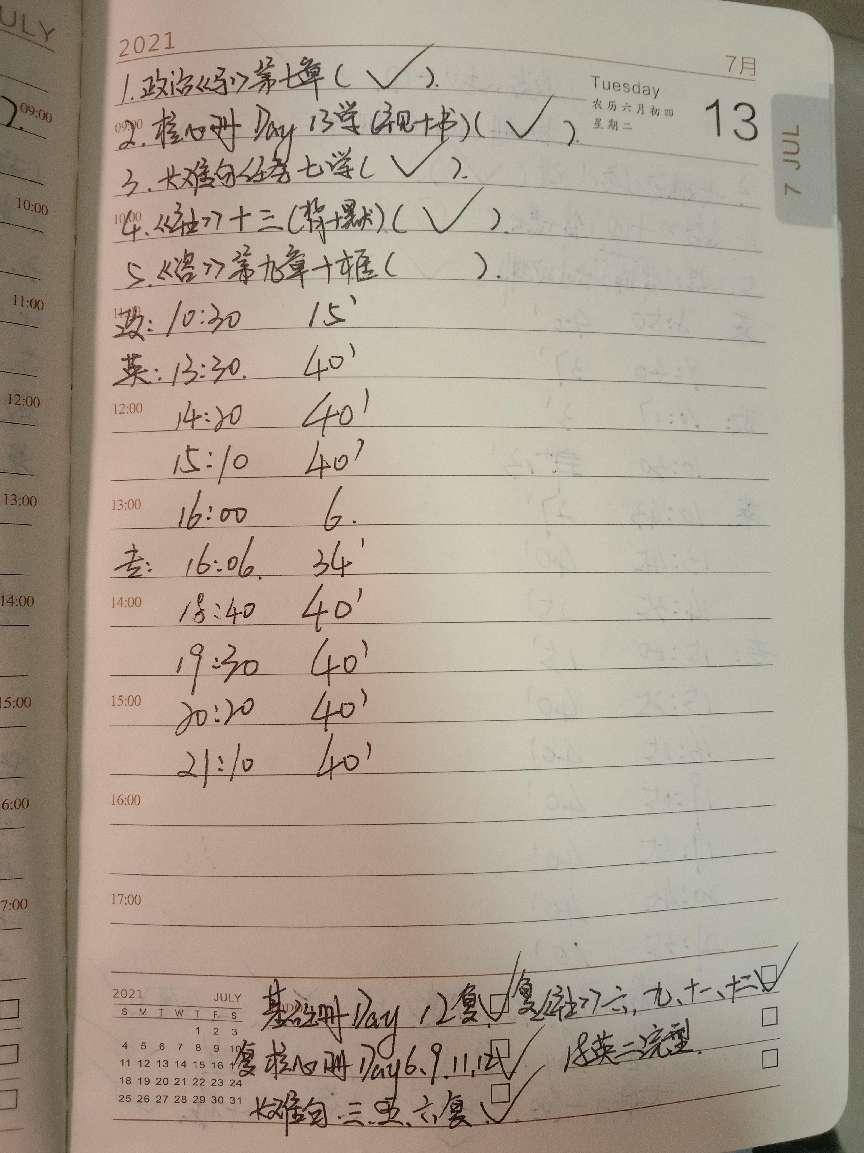 ULY
2021
7月
1.政治《马》第七章(✓).
Tuesday
农历六月初四
星期二
13
7 JUL
09:00
09:00
2.核心册Day 13学(视+书)(✓).
3.长难句任务七学(✓).
10:00
10:00
4.《》十三(背+默)(✓).
5.《》第九章+框( ).
11:00
政:10:30 15'
英:13:30. 40'
12:00
12:00
14:20 40'
15:10 40'
13:00
13:00
16:00 6.
专:16:06. 34'
14:00
14:00
18:40 40'
19:30 40'
15:00
15:00
20:20 40'
21:10 40'
16:00
6:00
17:00
7:00
2021 JULY
S M T W T F S
1 2 3
4 5 6 7 8 9 10
11 12 13 14 15 16 1
18 19 20 21 22 23 24
25 26 27 28 29 30 31
基础册Day 12复✓
复《》六、九、十一、十二✓
复核心册Day6、9、11、12✓
18英二完型.
长难句.三.五、六复.✓